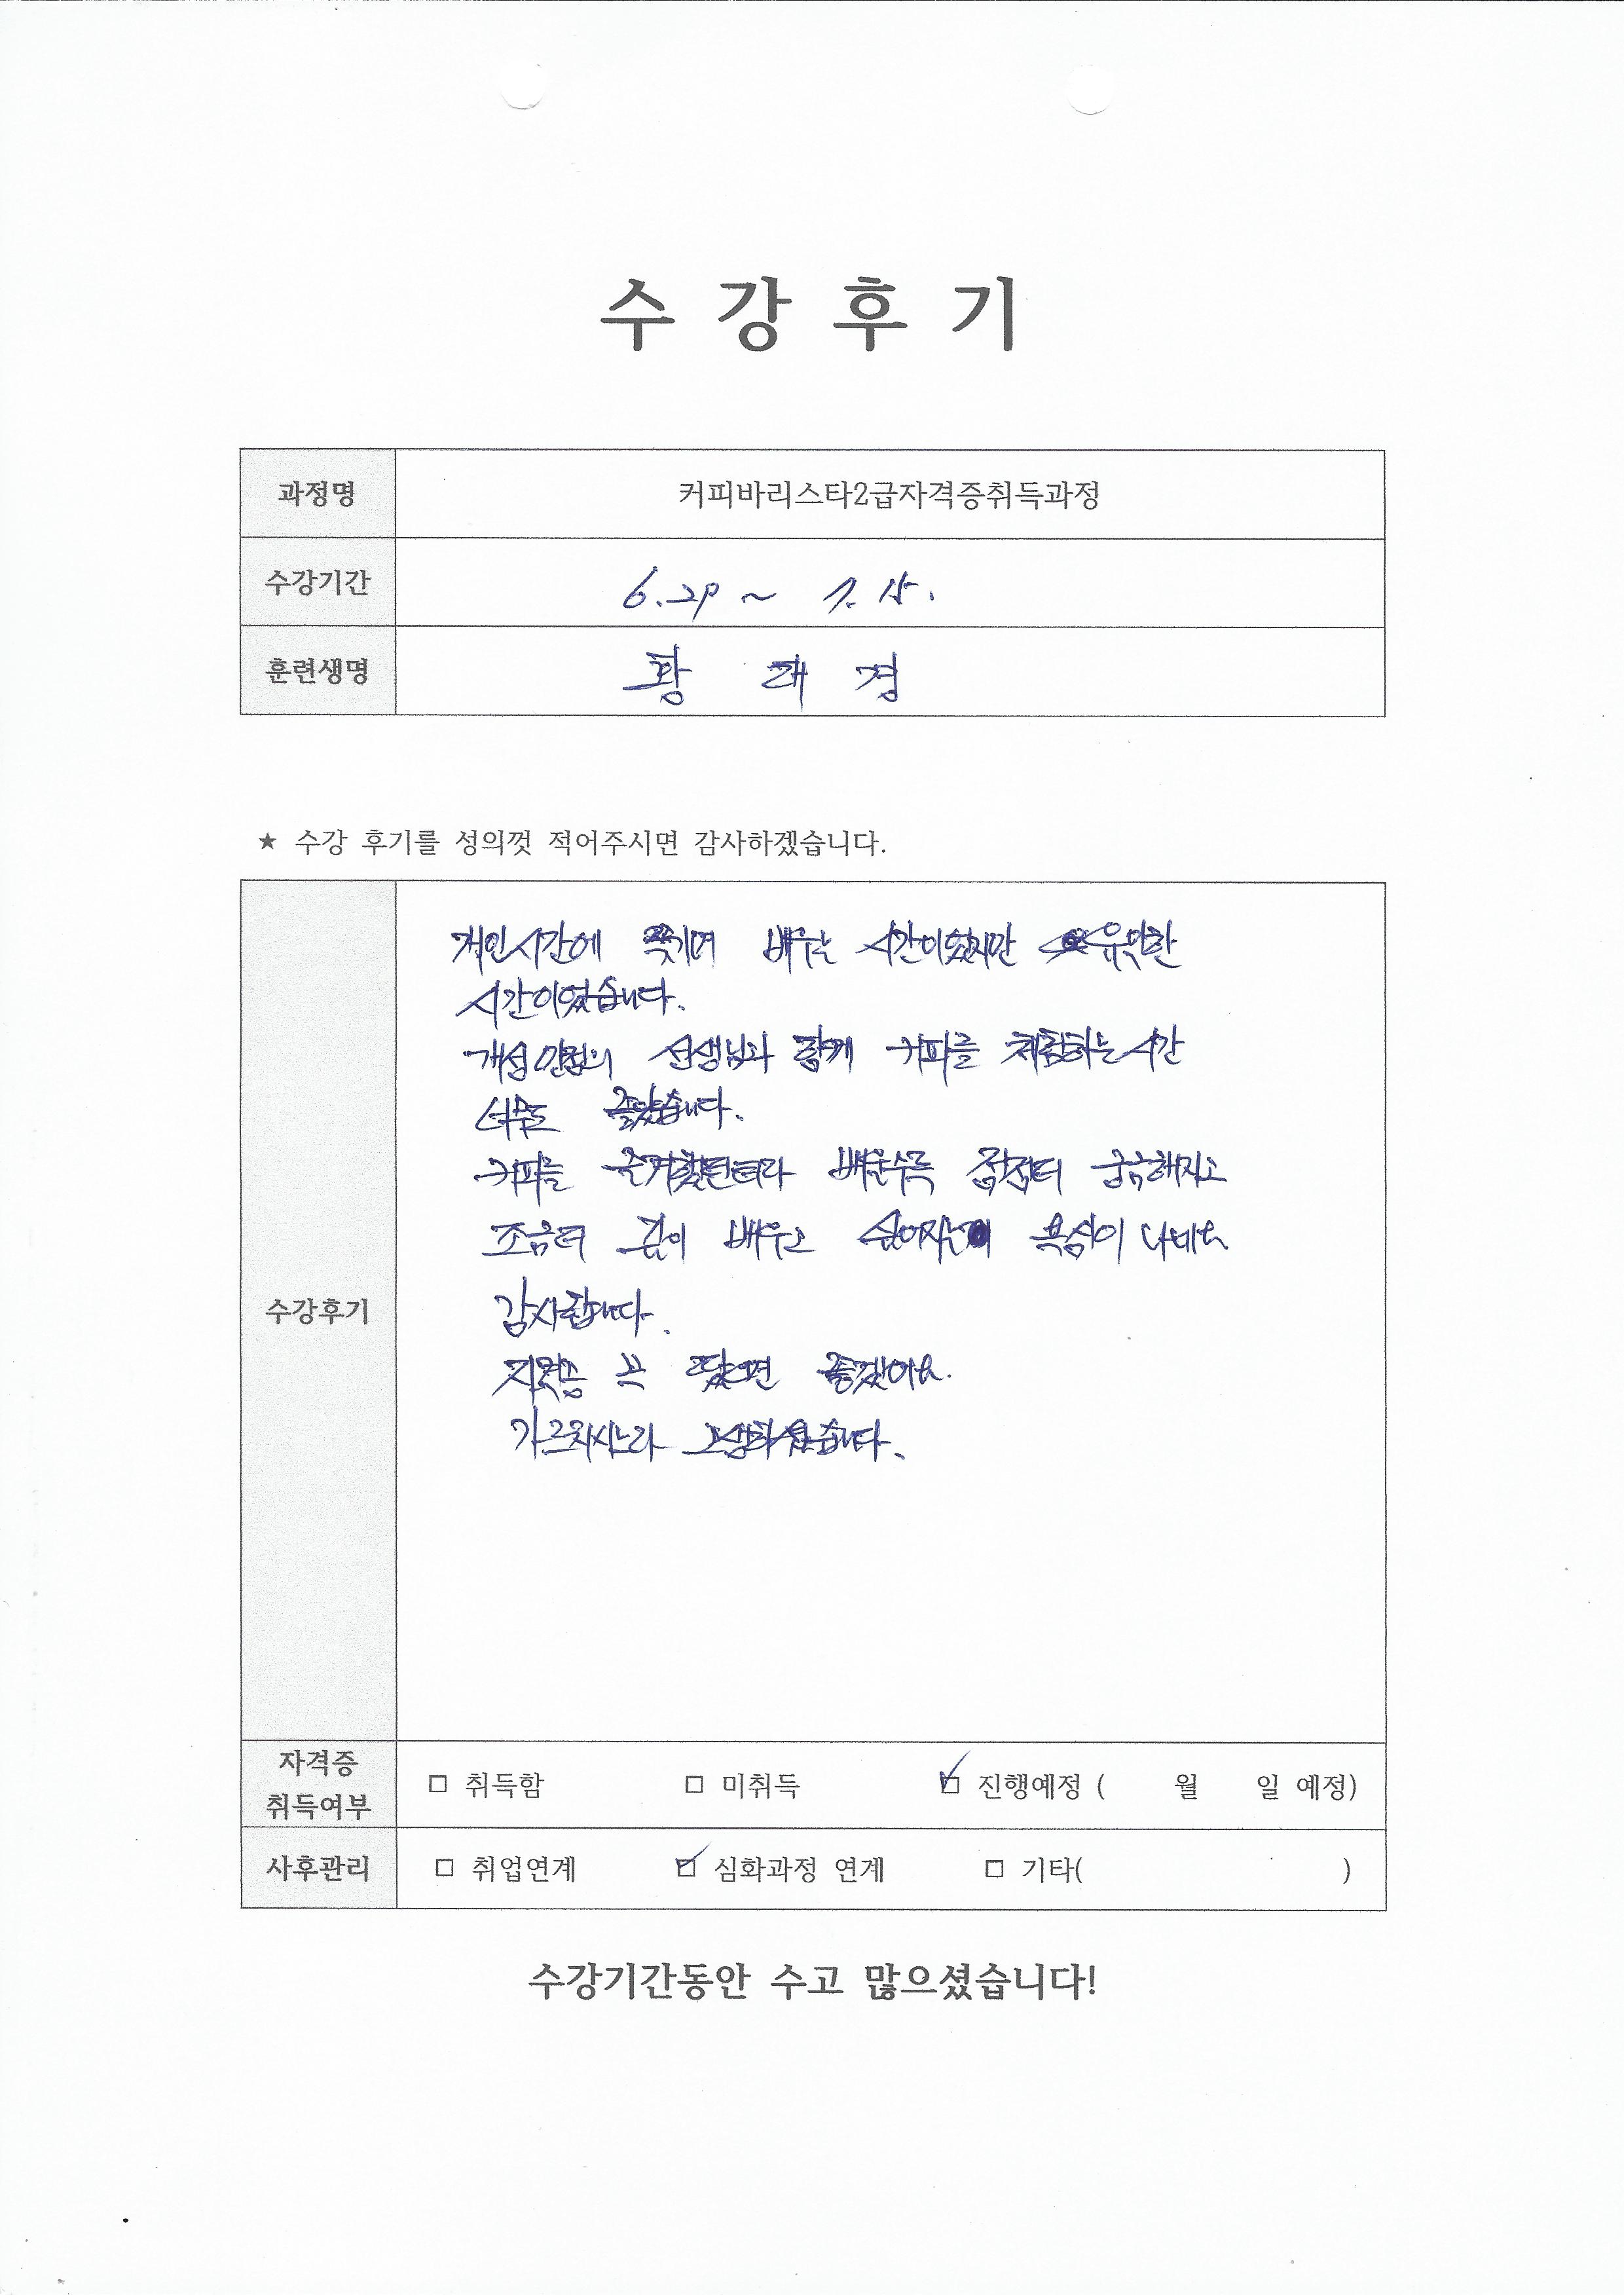 수 강 후 기
과정명 커피바리스타2급자격증취득과정
수강기간 6.29 ~ 7.15.
훈련생명 황 태 경
★ 수강 후기를 성의껏 적어주시면 감사하겠습니다.
수강후기
개인시간에 쫓기며 배우는 시간이었지만 유익한
시간이었습니다.
개성만점의 선생님과 함께 커피를 체험하는 시간
너무도 좋았습니다.
커피를 배울수록 점점더 궁금해지고
조금더 깊이 배우고 싶어지는 욕심이 나네요
감사합니다.
자격증 꼭 땄으면 좋겠어요.
가르치시느라 고생하셨습니다.
자격증
취득여부 □ 취득함 □ 미취득 ☑ 진행예정 ( 월 일 예정)
사후관리 □ 취업연계 ☑ 심화과정 연계 □ 기타( )
수강기간동안 수고 많으셨습니다!